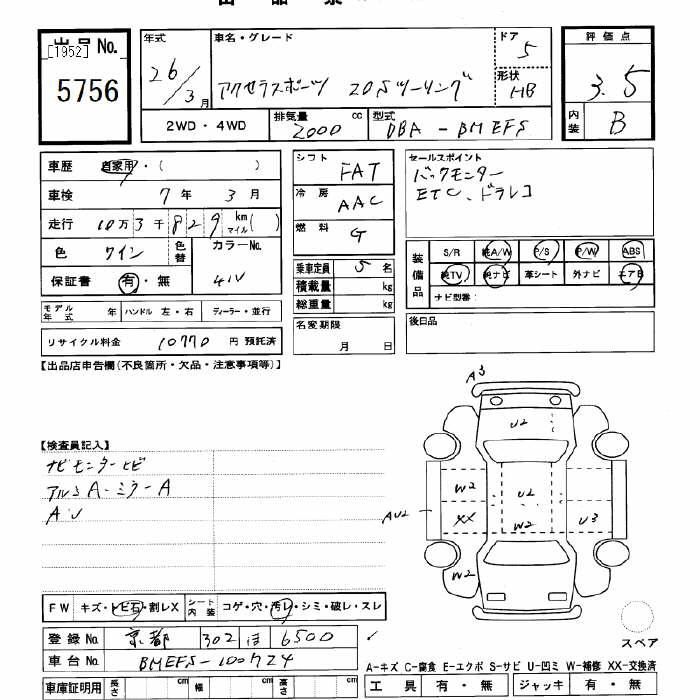 出品票
出品 No.
[1952]
5756
年式
26/3月
車名・グレード
アクセラスポーツ 20Sツーリング
ドア
5
形状
HB
評価点
3.5
内装
B
2WD・4WD
排気量
2000 cc
型式
DBA - BMEFS
車歴 自家用・( )
車検 7年 3月
走行 10万3千829 km マイル( )
色 ワイン
色替
カラーNo.
41V
保証書 有・無
モデル年式 年
ハンドル 左・右
ディーラー・並行
リサイクル料金 10770 円 預託済
シフト FAT
冷房 AAC
燃料 G
乗車定員 5 名
積載量 kg
総重量 kg
名変期限
月 日
セールスポイント
バックモニター
ETC、ドラレコ
装備品
S/R 純A/W P/S P/W ABS
純TV 純ナビ 革シート 外ナビ エアB
ナビ型番:
後日品
【出品店申告欄(不良箇所・欠品・注意事項等)】
【検査員記入】
ナビモニターヒビ
アルミA・ミラーA
AU
A3
U2
W2
U2
AU2
XX
W2
U3
W2
スペア
FW キズ・トビ石・割レX
シート内装 コゲ・穴・汚レ・シミ・破レ・スレ
登録 No. 京都 302 ほ 6500
車台 No. BMEFS-100724
車庫証明用 長さ cm 幅 cm 高さ cm
A-キズ C-腐食 E-エクボ S-サビ U-凹ミ W-補修 XX-交換済
工具 有・無 ジャッキ 有・無